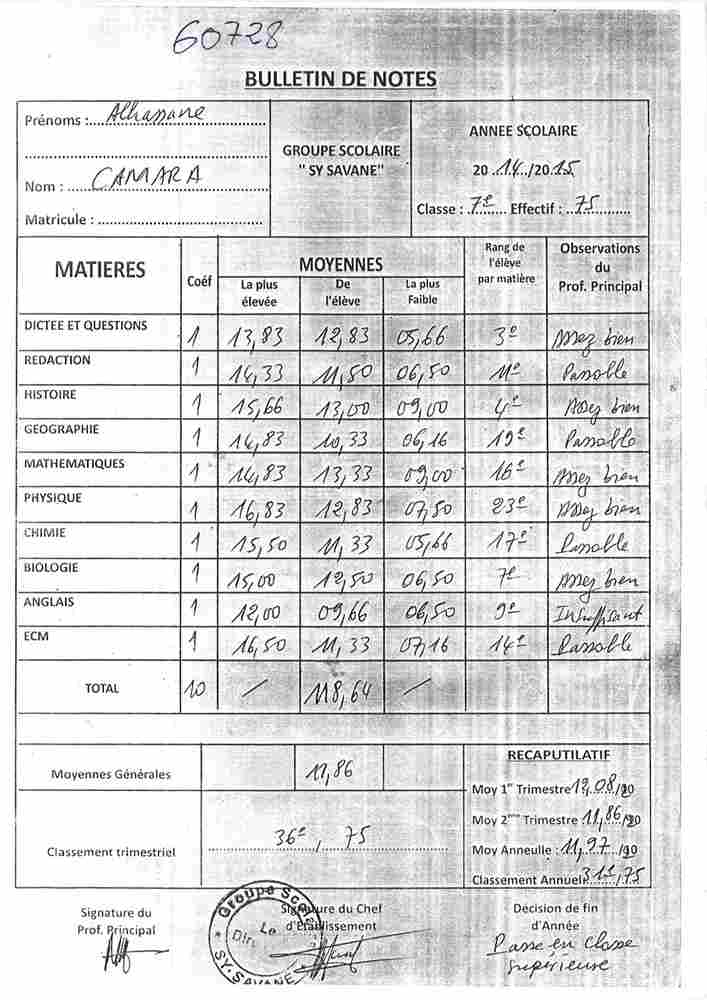 60728
BULLETIN DE NOTES
Prénoms : Alhassane
Nom : CAMARA
Matricule :
GROUPE SCOLAIRE
" SY SAVANE"
ANNEE SCOLAIRE
20 14 /20 15
Classe : 7e Effectif : 75
MATIERES Coéf MOYENNES Rang de l'élève par matière Observations du Prof. Principal
La plus élevée De l'élève La plus Faible
DICTEE ET QUESTIONS 1 13,83 12,83 05,66 3e Assez bien
REDACTION 1 14,33 11,50 06,50 11e Passable
HISTOIRE 1 15,66 13,00 09,00 4e Assez bien
GEOGRAPHIE 1 14,83 10,33 06,16 19e Passable
MATHEMATIQUES 1 14,83 13,33 09,00 16e Assez bien
PHYSIQUE 1 16,83 12,83 07,50 23e Assez bien
CHIMIE 1 15,50 11,33 05,66 17e Passable
BIOLOGIE 1 15,00 12,50 06,50 7e Assez bien
ANGLAIS 1 12,00 09,66 06,50 9e Insuffisant
ECM 1 16,50 11,33 07,16 14e Passable
TOTAL 10 / 118,64 /
Moyennes Générales 11,86
Classement trimestriel 36e, 75
RECAPUTILATIF
Moy 1er Trimestre 12,08/20
Moy 2ème Trimestre 11,86/20
Moy Anneulle : 11,97/20
Classement Annuel 31e/75
Signature du
Prof. Principal
Signature du Chef
d'Etablissement
Groupe Scol
Dir
Le
SY-SAVANE
Décision de fin
d'Année
Passe en classe
supérieure